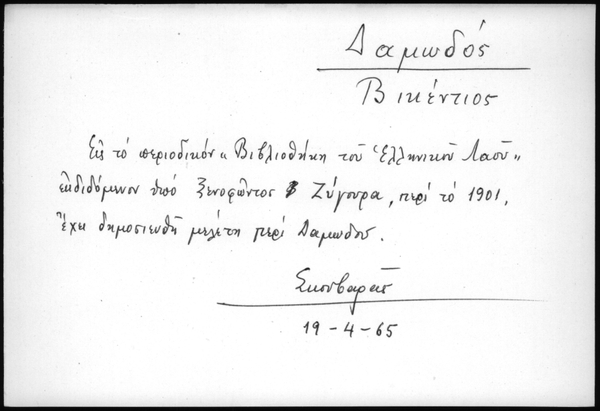 Δαμωδός
Βικέντιος
Εἰς τό περιοδικόν "Βιβλιοθήκη τοῦ Ἑλληνικοῦ Λαοῦ"
ἐκδιδόμενον ὑπό Ξενοφῶντος Ζύγουρα, περί τό 1901,
ἔχει δημοσιευθῆ μελέτη περί Δαμωδοῦ.
Σκουβαρᾶς
19-4-65